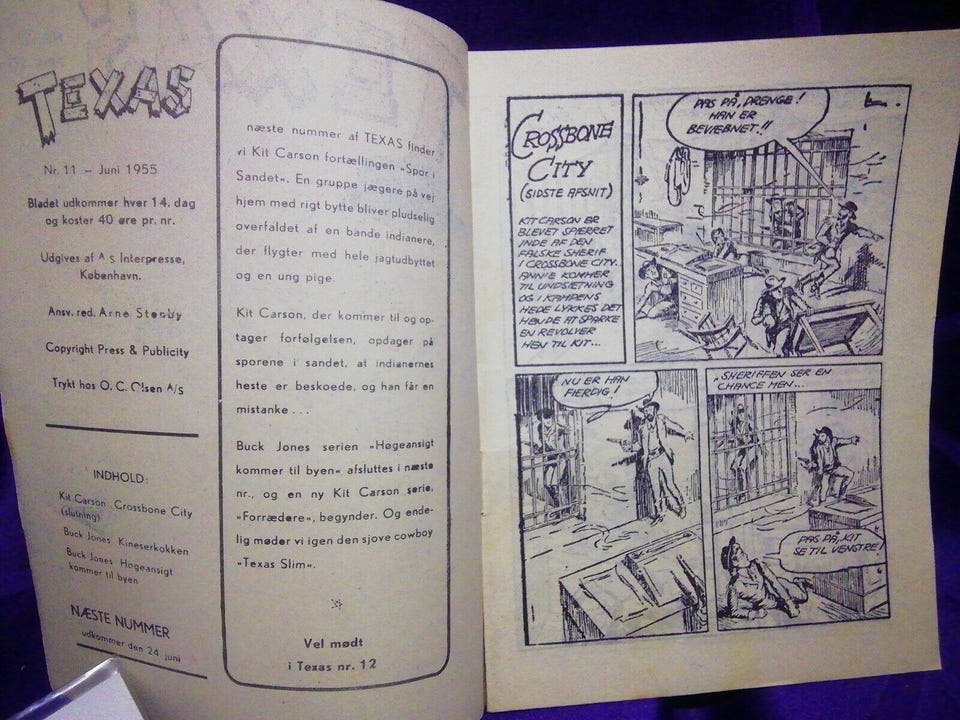 TEXAS
Nr. 11 – Juni 1955
Bladet udkommer hver 14. dag
og koster 40 øre pr. nr.
Udgives af A/s Interpresse,
København.
Ansv. red. Arne Stenby
Copyright Press & Publicity
Trykt hos O. C. Olsen A/S
INDHOLD:
Kit Carson Crossbone City
(slutning)
Buck Jones Kineserkokken
Buck Jones Høgeansigt
kommer til byen
NÆSTE NUMMER
udkommer den 24. juni
næste nummer af TEXAS finder
vi Kit Carson fortællingen »Spor i
Sandet«. En gruppe jægere på vej
hjem med rigt bytte bliver pludselig
overfaldet af en bande indianere,
der flygter med hele jagtudbyttet
og en ung pige.
Kit Carson, der kommer til og op-
tager forfølgelsen, opdager på
sporene i sandet, at indianernes
heste er beskoede, og han får en
mistanke . . .
Buck Jones serien »Høgeansigt
kommer til byen« afsluttes i næste
nr., og en ny Kit Carson serie,
»Forrædere«, begynder. Og ende-
lig møder vi igen den sjove cowboy
»Texas Slim«.
Vel mødt
i Texas nr. 12
CROSSBONE
CITY
(SIDSTE AFSNIT)
KIT CARSON ER
BLEVET SPÆRRET
INDE AF DEN
FALSKE SHERIF
I CROSSBONE CITY.
ANNIE KOMMER
TIL UNDSÆTNING
OG I KAMPENS
HEDE LYKKES DET
HENDE AT SPARKE
EN REVOLVER
HEN TIL KIT...
PAS PÅ, DRENGE!
HAN ER
BEVÆBNET!!
NU ER HAN
FÆRDIG!
SHERIFFEN SER EN
CHANCE MEN...
PAS PÅ, KIT
SE TIL VENSTRE!